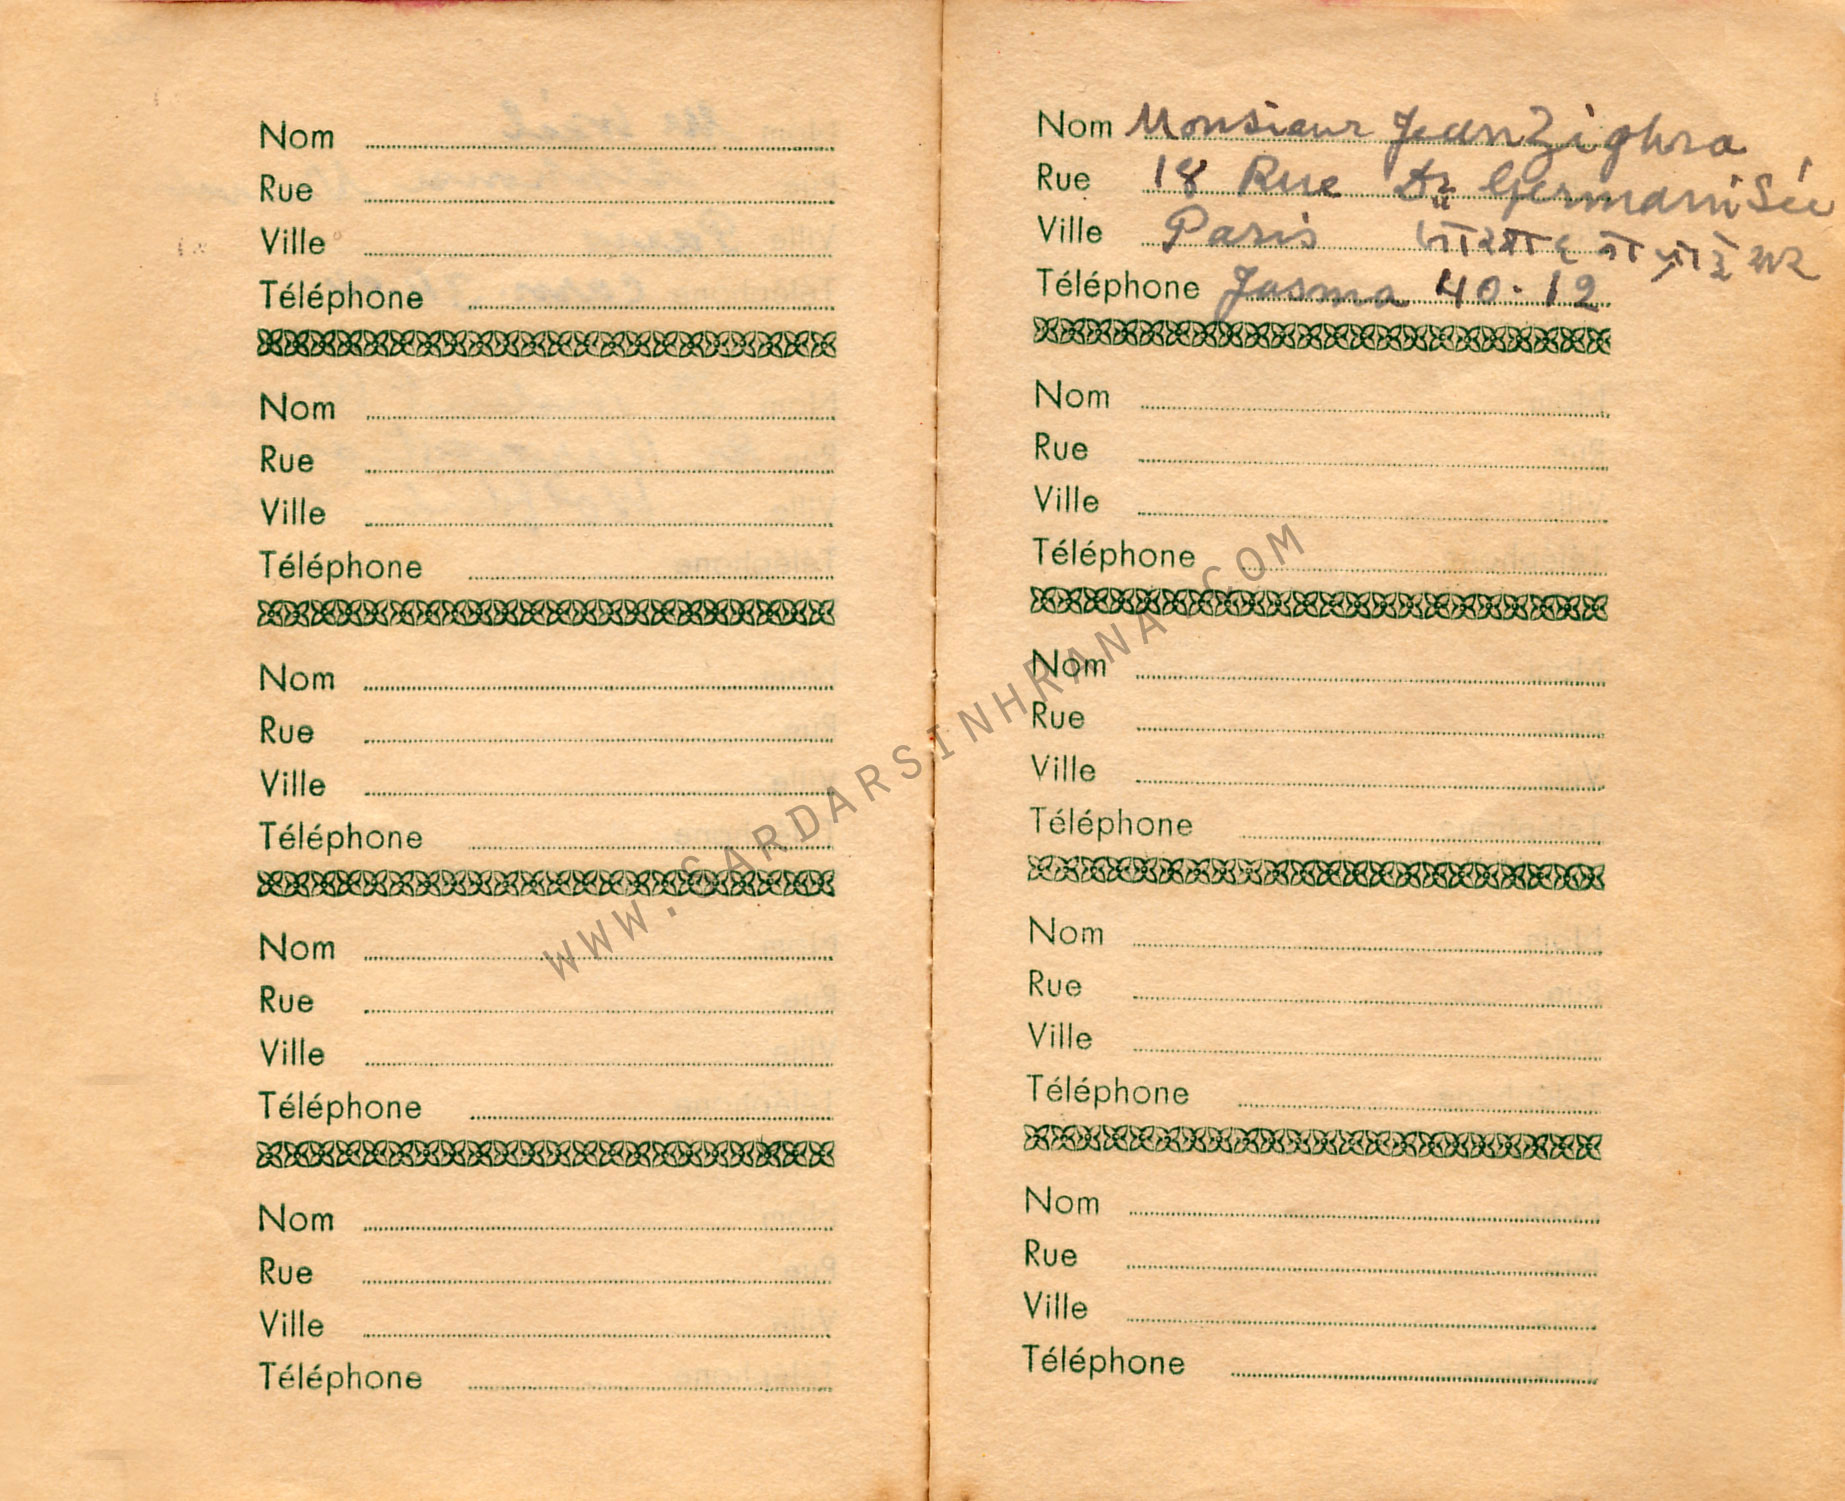 Nom
Rue
Ville
Téléphone
Nom
Rue
Ville
Téléphone
Nom
Rue
Ville
Téléphone
Nom
Rue
Ville
Téléphone
Nom
Rue
Ville
Téléphone
Nom Monsieur Jean Zighra
Rue 18 Rue Dr Germain Sée
Ville Paris
Téléphone Jasma 40.12
Nom
Rue
Ville
Téléphone
Nom
Rue
Ville
Téléphone
Nom
Rue
Ville
Téléphone
Nom
Rue
Ville
Téléphone
WWW.SARDARSINHRANA.COM